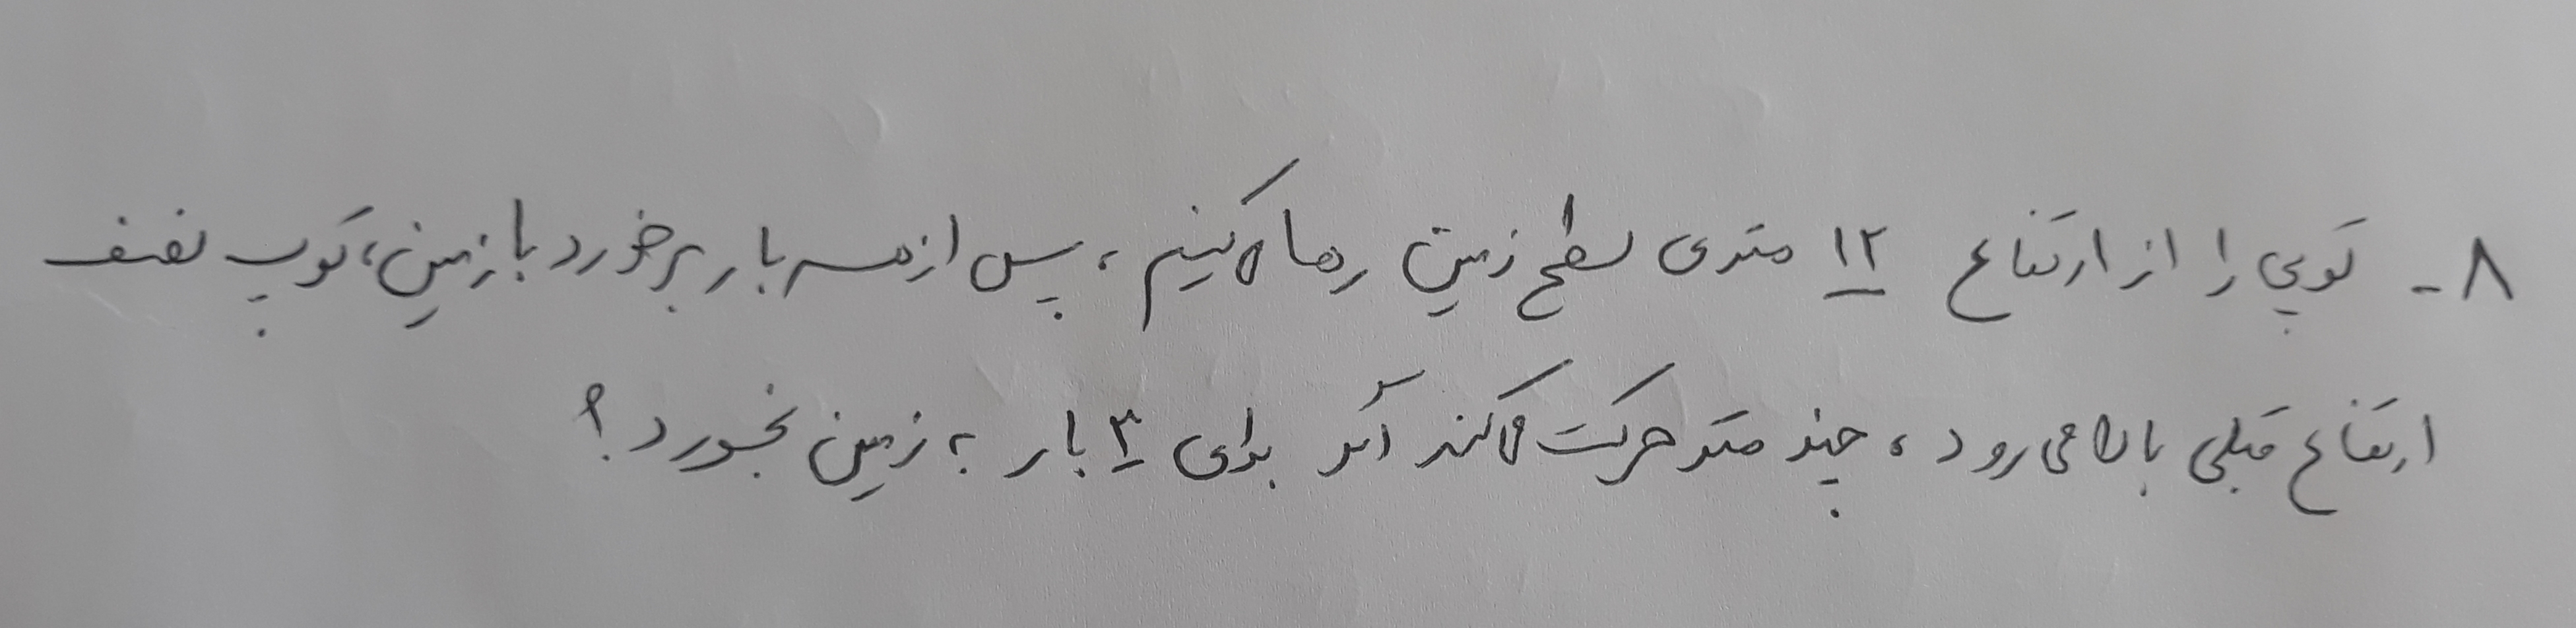 ۸- توپی را از ارتفاع ۱۲ متری سطح زمین رها می‌کنیم، پس از هر بار برخورد با زمین، توپ نصف
ارتفاع قبلی بالا می‌رود، چند متر حرکت می‌کند اگر برای ۳ بار به زمین بخورد؟